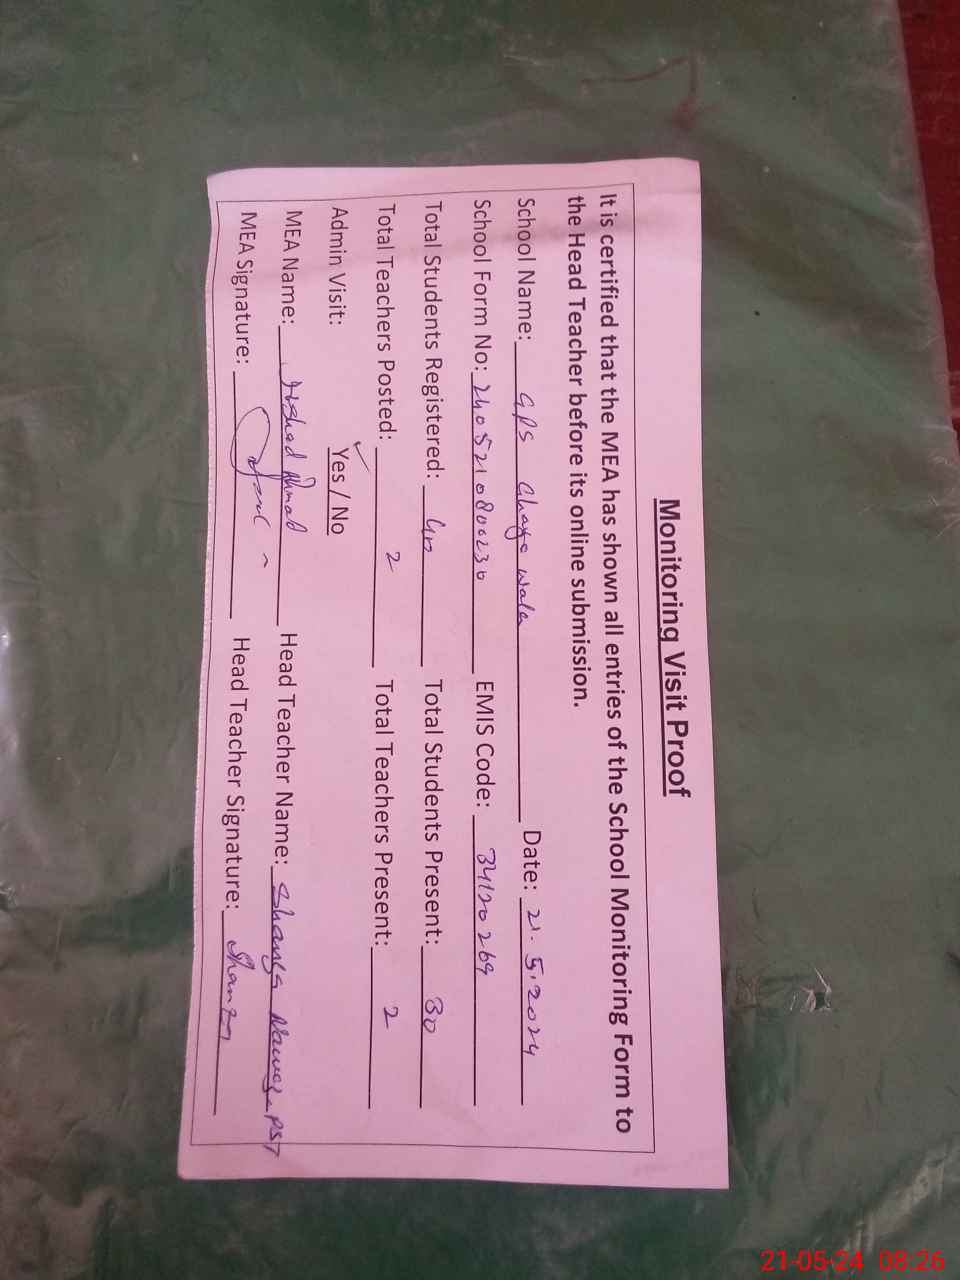 Monitoring Visit Proof
It is certified that the MEA has shown all entries of the School Monitoring Form to
the Head Teacher before its online submission.
School Name: GPS wala Date: 21.5.2024
School Form No: EMIS Code: 34120269
Total Students Registered: 40 Total Students Present: 30
Total Teachers Posted: 2 Total Teachers Present: 2
Admin Visit: Yes / No
MEA Name: Ahmad Head Teacher Name: PST
MEA Signature: Head Teacher Signature:
21-05-24 08:26